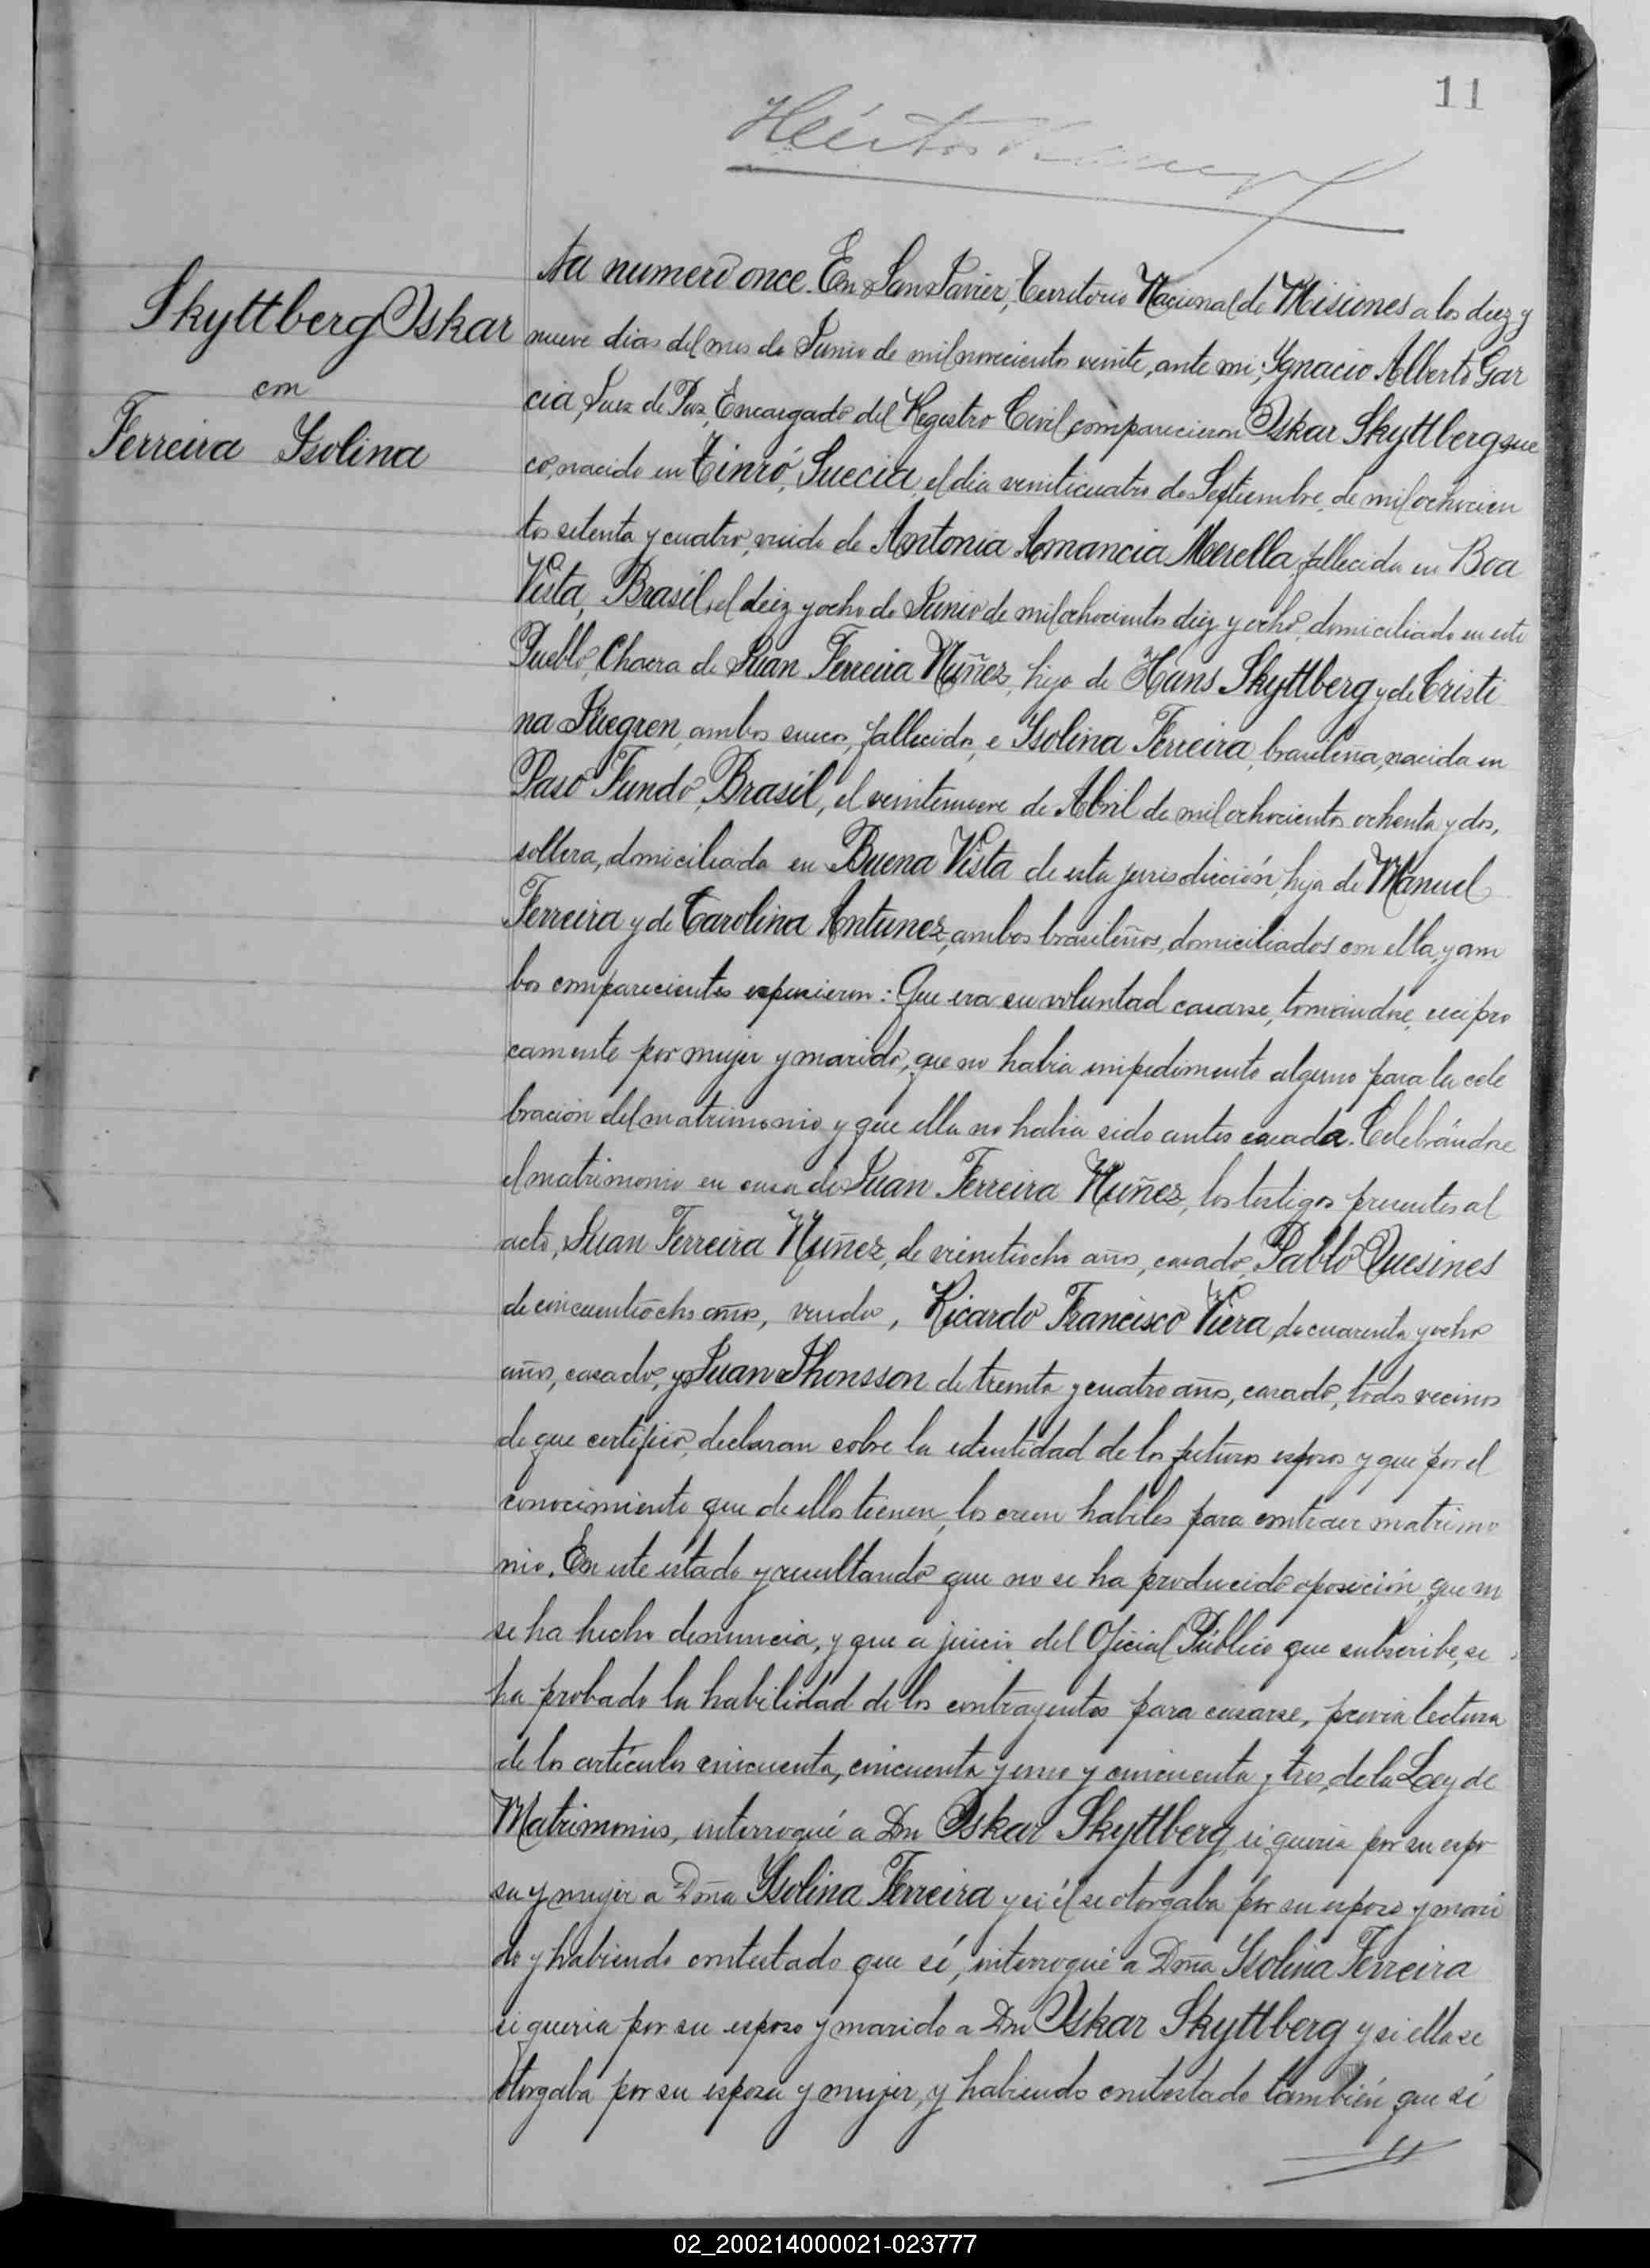 11
Skyttberg Oskar
con
Ferreira Isolina
Acta numero once. En San Javier, Territorio Nacional de Misiones a los diez y
nueve dias del mes de Junio de mil novecientos veinte, ante mi, Ygnacio Alberto Gar
cia, Juez de Paz, Encargado del Registro Civil, comparecieron Oskar Skyttberg, sue
co, nacido en Tinró, Suecia, el dia veinticuatro de Septiembre, de mil ochocien
tos setenta y cuatro, viudo de Antonia Amancia Merella, fallecida en Boa
Vista, Brasil, el diez y ocho de Junio de mil ochocientos diez y ocho, domiciliado en este
Pueblo, Chacra de Juan Ferreira Nuñez, hijo de Hans Skyttberg y de Cristi
na, ambos suecos, fallecidos, e Isolina Ferreira, brasileña, nacida en
Paso Fundo, Brasil, el veintenueve de Abril de mil ochocientos ochenta y dos,
soltera, domiciliada en Buena Vista de esta jurisdicción, hija de Manuel
Ferreira y de Carolina Antunez, ambos brasileños, domiciliados con ella, y am
bos comparecientes expusieron: Que era su voluntad casarse, tomándose, recipro
camente por mujer y marido, que no habia impedimento alguno para la cele
bración del matrimonio y que ella no habia sido antes casada. Celebrándose
el matrimonio en casa de Juan Ferreira Nuñez, los testigos presentes al
acto, Juan Ferreira Nuñez, de veintiocho años, casado, Pablo Quesines
de cincuentiocho años, viudo, Ricardo Francisco Viera, de cuarenta y ocho
años, casado, y Juan Jhonsson de treinta y cuatro años, casado, todos vecinos
de que certifico, declaran sobre la identidad de los futuros esposos y que por el
conocimiento que de ellos tienen, los creen habiles para contraer matrimo
nio. En este estado y resultando que no se ha producido oposición, que no
se ha hecho denuncia, y que a juicio del Oficial Público que subscribe, se
ha probado la habilidad de los contrayentes para casarse, previa lectura
de los artículos cincuenta, cincuenta y uno y cincuenta y tres, de la Ley de
Matrimonio, interrogué a Dn Oskar Skyttberg, si queria por su espo
sa y mujer a Doña Isolina Ferreira y si él se otorgaba por su esposo y mari
do y habiendo contestado que sí, interrogué a Doña Isolina Ferreira
si queria por su esposo y marido a Dn Oskar Skyttberg y si ella se
otorgaba por su esposa y mujer, y habiendo contestado también que sí
02_200214000021-023777